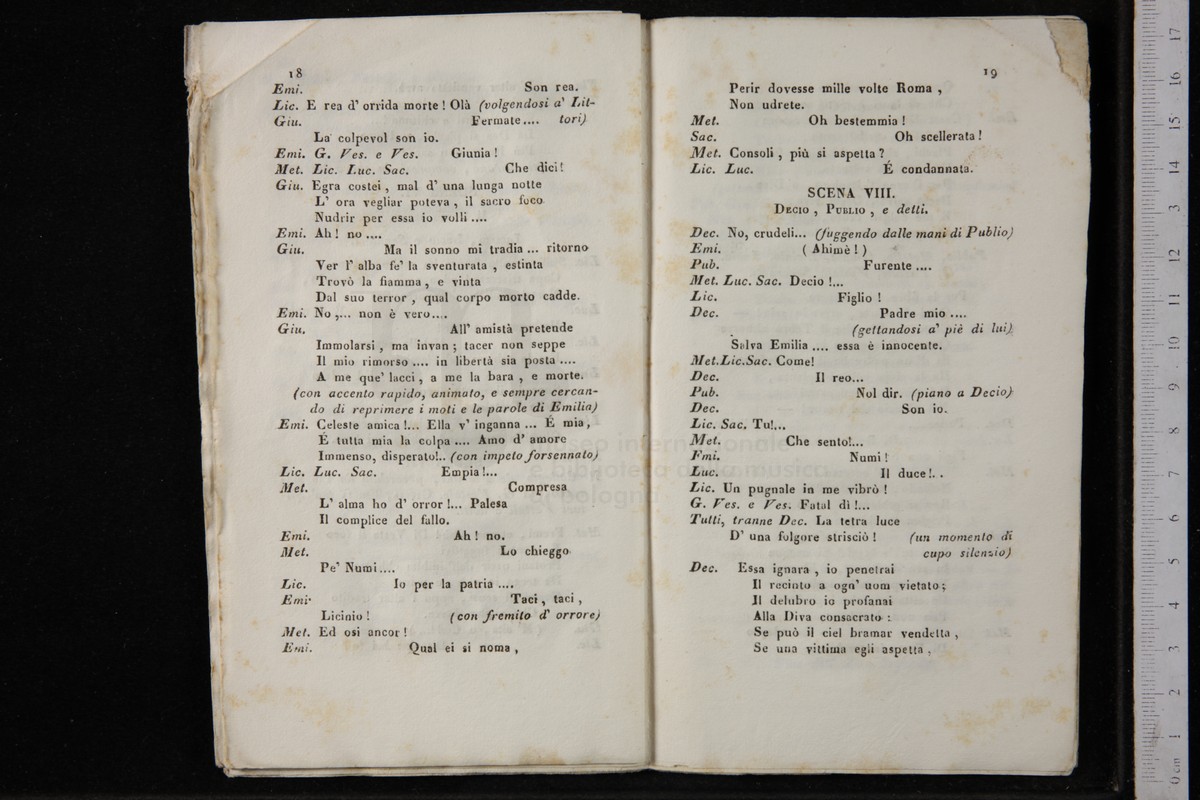 18
Emi. Son rea.
Lic. E rea d' orrida morte ! Olà (volgendosi a' Lit-
Giu. Fermate.... tori)
La colpevol son io.
Emi. G. Ves. e Ves. Giunia !
Met. Lic. Luc. Sac. Che dici !
Giu. Egra costei , mal d' una lunga notte
L' ora vegliar poteva , il sacro foco
Nudrir per essa io volli ....
Emi. Ah ! no ....
Giu. Ma il sonno mi tradia ... ritorno
Ver l' alba fe' la sventurata , estinta
Trovò la fiamma , e vinta
Dal suo terror , qual corpo morto cadde.
Emi. No ,... non è vero....
Giu. All' amistà pretende
Immolarsi , ma invan ; tacer non seppe
Il mio rimorso .... in libertà sia posta ....
A me que' lacci , a me la bara , e morte.
(con accento rapido, animato, e sempre cercan-
do di reprimere i moti e le parole di Emilia)
Emi. Celeste amica !... Ella v' inganna ... É mia,
É tutta mia la colpa .... Amo d' amore
Immenso, disperato!.. (con impeto forsennato)
Lic. Luc. Sac. Empia !...
Met. Compresa
L' alma ho d' orror !... Palesa
Il complice del fallo.
Emi. Ah ! no.
Met. Lo chieggo
Pe' Numi....
Lic. Io per la patria ....
Emi. Taci , taci ,
Licinio ! (con fremito d' orrore)
Met. Ed osi ancor !
Emi. Qual ei si noma ,
19
Perir dovesse mille volte Roma ,
Non udrete.
Met. Oh bestemmia !
Sac. Oh scellerata !
Met. Consoli , più si aspetta ?
Lic. Luc. É condannata.
SCENA VIII.
Decio , Publio , e detti.
Dec. No, crudeli... (fuggendo dalle mani di Publio)
Emi. ( Ahimè ! )
Pub. Furente ....
Met. Luc. Sac. Decio !...
Lic. Figlio !
Dec. Padre mio ....
(gettandosi a' piè di lui)
Salva Emilia .... essa è innocente.
Met.Lic.Sac. Come!
Dec. Il reo...
Pub. Nol dir. (piano a Decio)
Dec. Son io.
Lic. Sac. Tu!...
Met. Che sento!...
Emi. Numi !
Luc. Il duce !. .
Lic. Un pugnale in me vibrò !
G. Ves. e Ves. Fatal dì !...
Tutti, tranne Dec. La tetra luce
D' una folgore strisciò ! (un momento di
cupo silenzio)
Dec. Essa ignara , io penetrai
Il recinto a ogn' uom vietato ;
Il delubro io profanai
Alla Diva consacrato :
Se può il ciel bramar vendetta ,
Se una vittima egli aspetta ,
museo internazionale
e biblioteca della musica
di bologna
0 cm 1 2 3 4 5 6 7 8 9 10 11 12 13 14 15 16 17